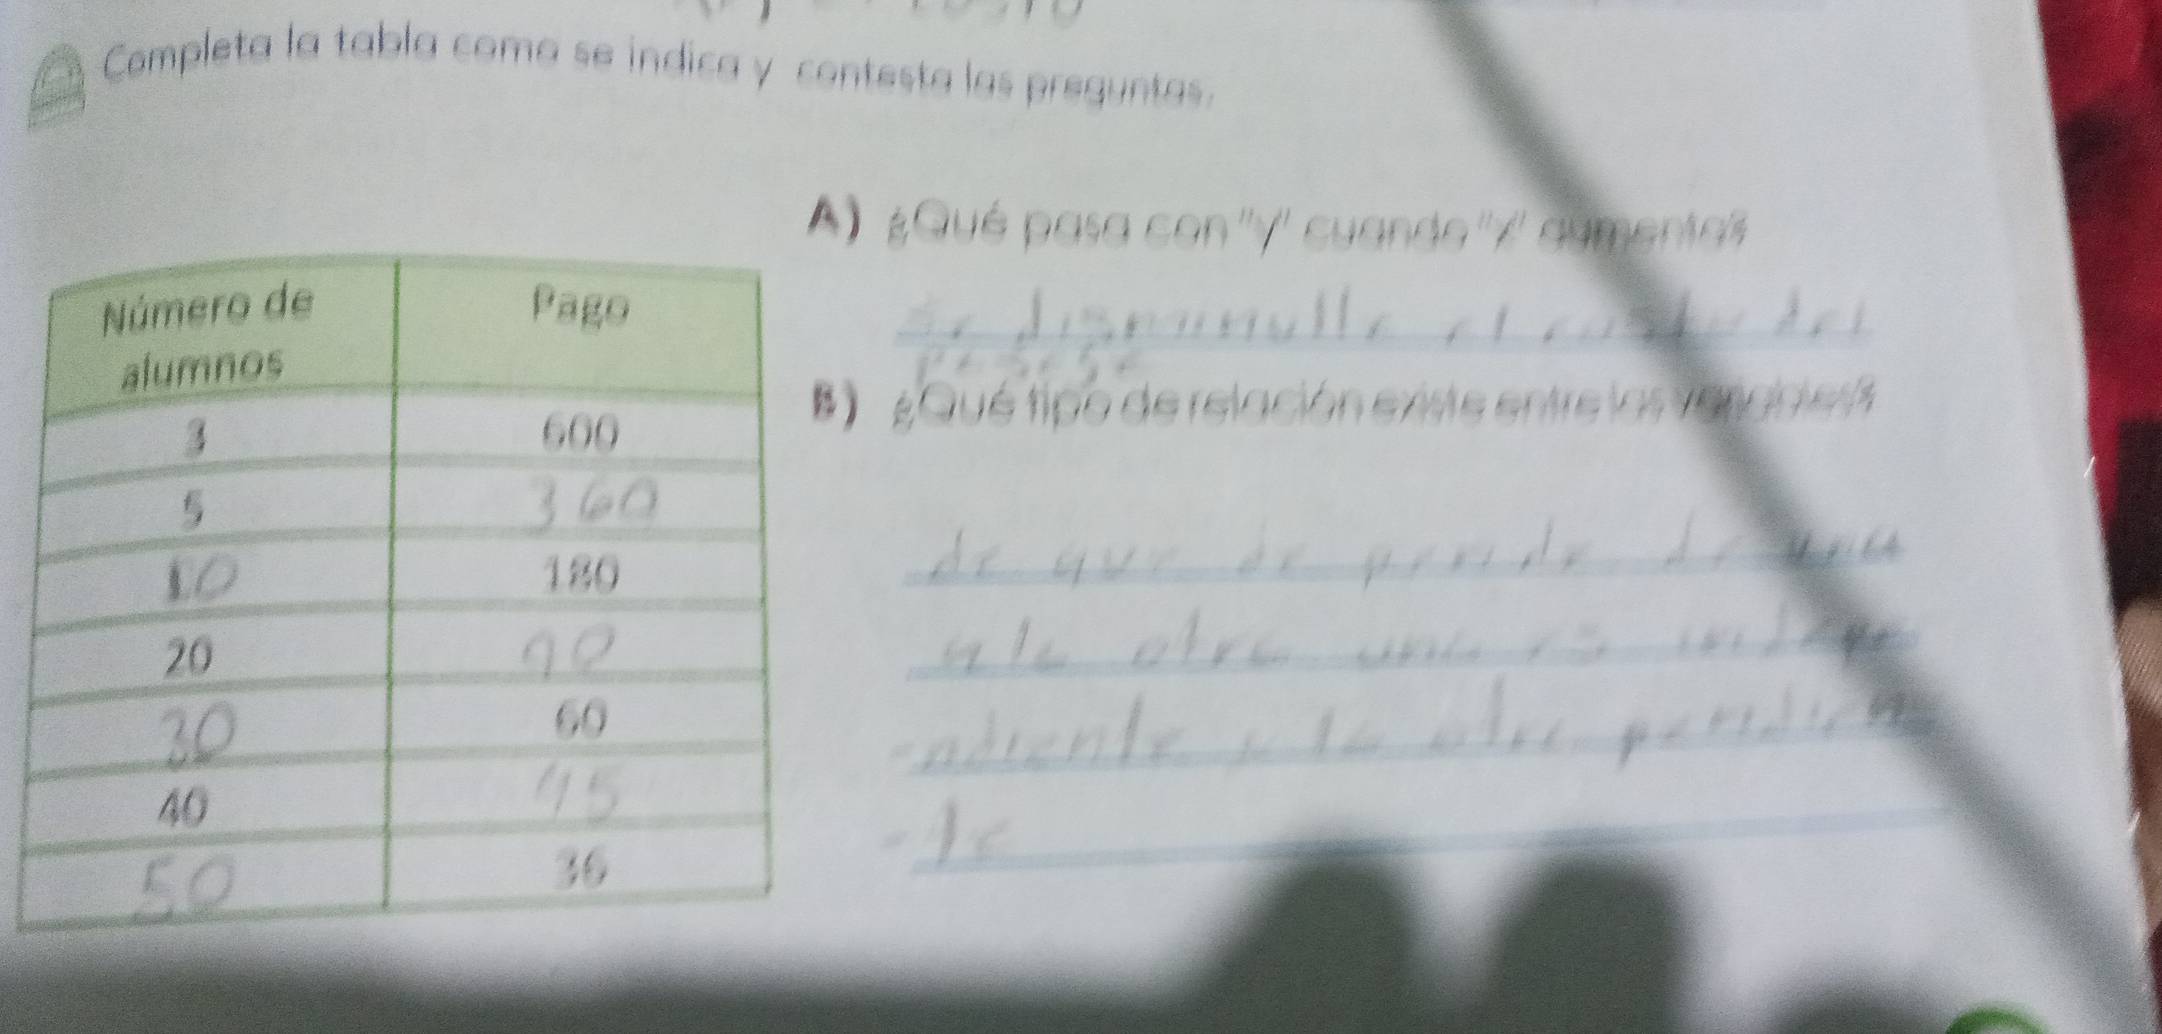 Completa la tabla como se indica y contesta las preguntas.
A) ¿Qué pasa con "y" cuando "x" aumenta?
Número de alumnos Pago
Se disminulle el costo del
B) ¿Qué tipo de relación existe entre las variables?
3 600
5 360
10 180
de que de pende de una
20 90
a la otra una es indepe
30 60
-ndiente y la otra pendien
40 45
-te
50 36